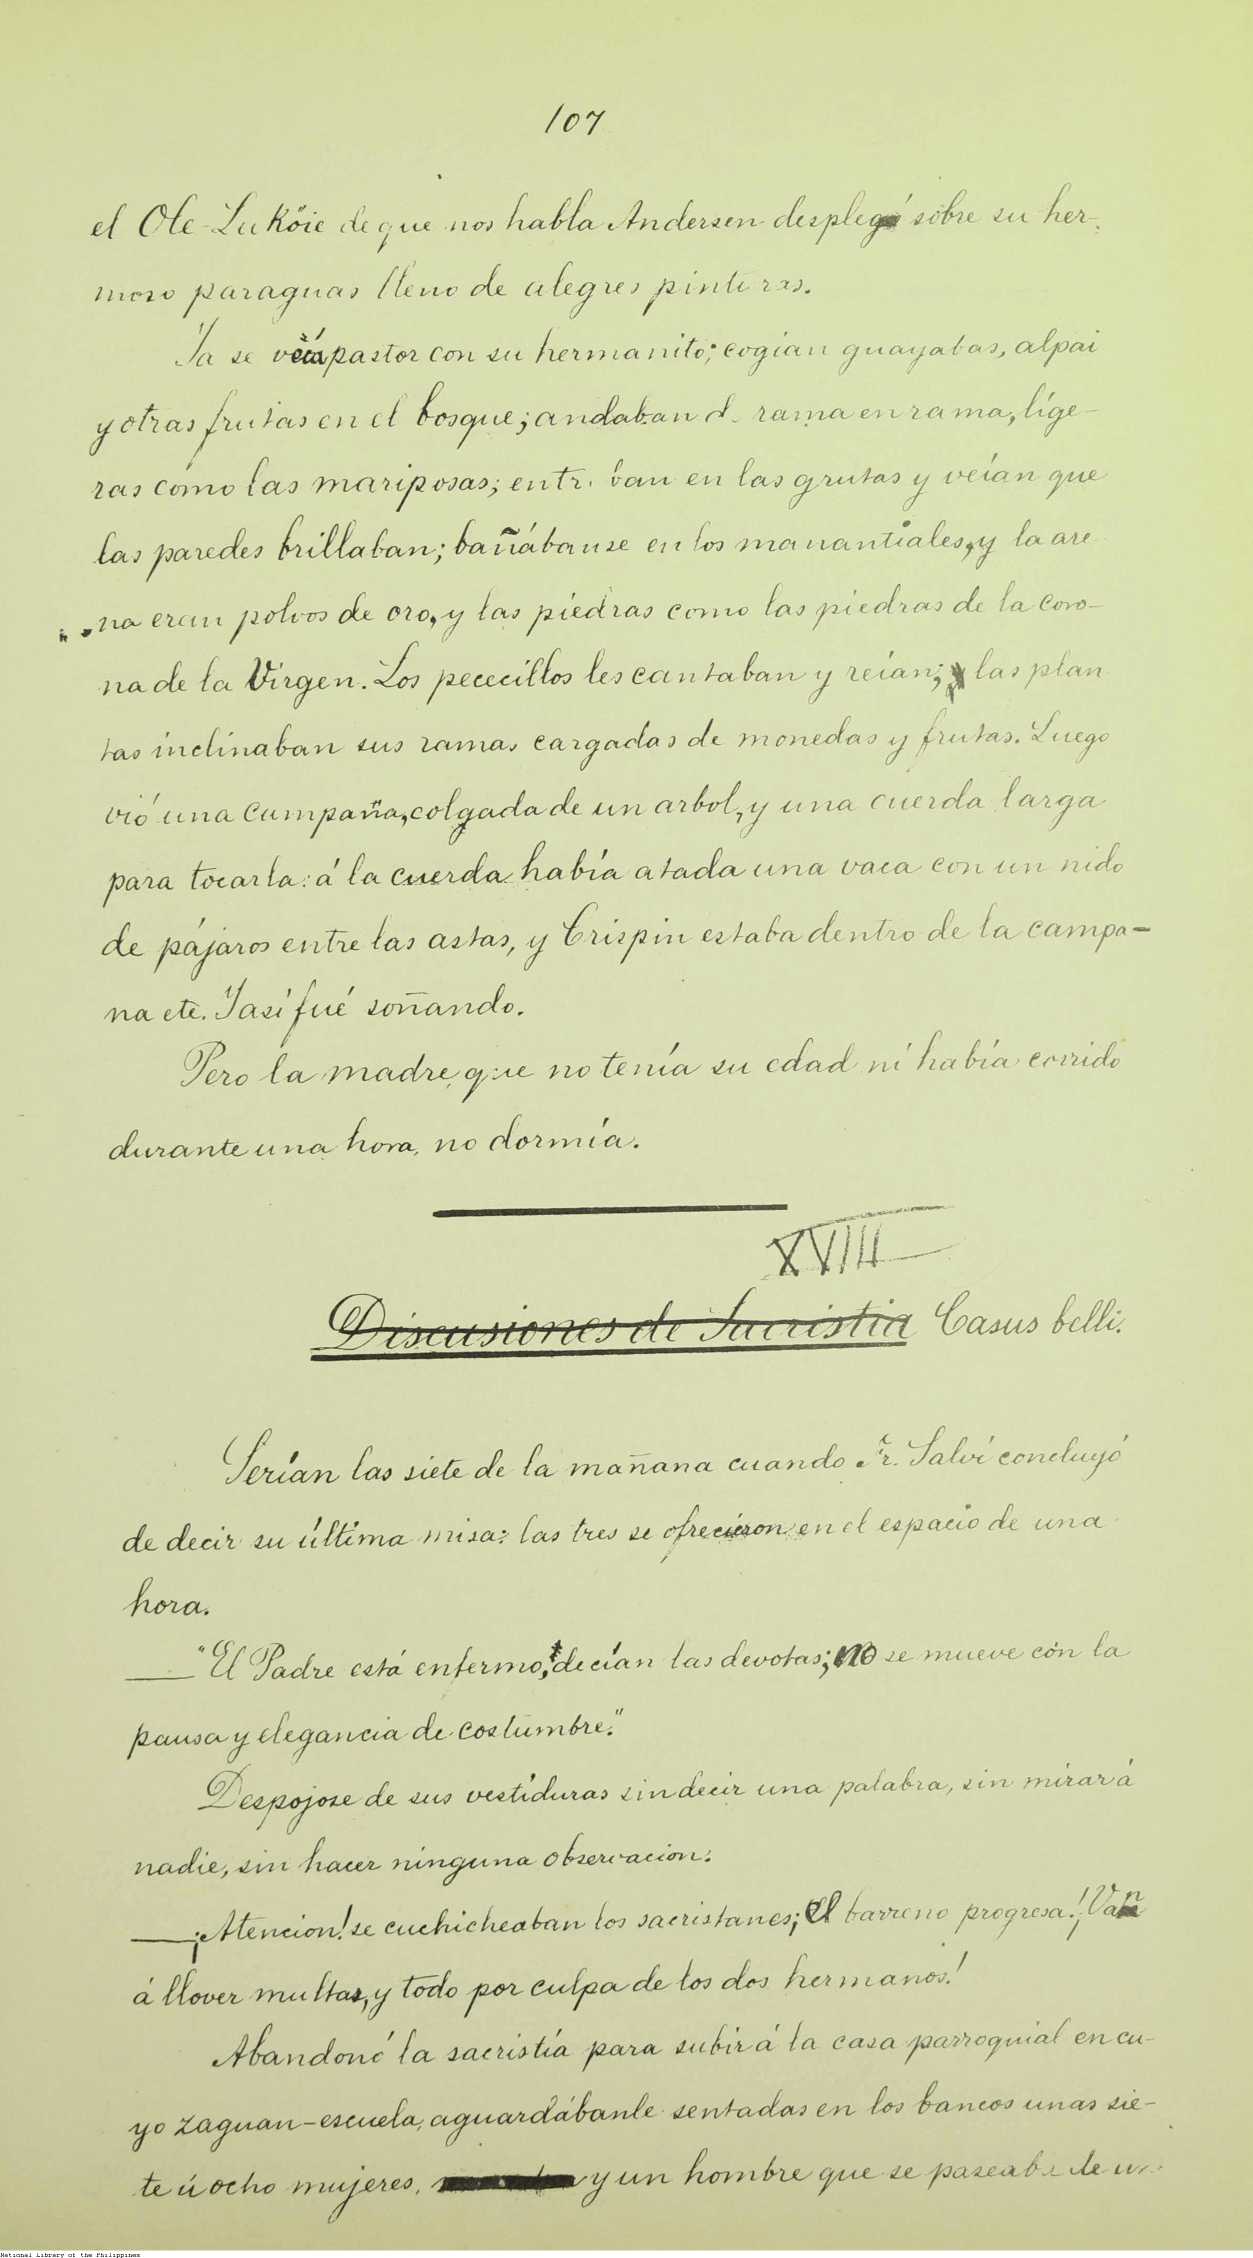 107
el Ole-Luköie de que nos habla Andersen desplegó sobre su her-
moso paraguas lleno de alegres pinturas.
Ya se veía pastor con su hermanito; cogian guayabas, alpai
y otras frutas en el bosque; andaban de rama en rama, lige-
ras como las mariposas; entraban en las grutas y veían que
las paredes brillaban; bañábanse en los manantiales, y la are-
na eran polvos de oro, y las piedras como las piedras de la coro-
na de la Virgen. Los pececillos les cantaban y reían; las plan
tas inclinaban sus ramas cargadas de monedas y frutas. Luego
vió una campana, colgada de un arbol, y una cuerda larga
para tocarla: á la cuerda había atada una vaca con un nido
de pájaros entre las astas, y Crispin estaba dentro de la campa-
na etc. Y asi fué soñando.
Pero la madre, que no tenía su edad ni había corrido
durante una hora, no dormía.
XVIII
Discusiones de Sacristia Casus belli.
Serían las siete de la mañana cuando Fr. Salví concluyó
de decir su última misa: las tres se ofrecieron en el espacio de una
hora.
—"El Padre está enfermo, decían las devotas; no se mueve con la
pausa y elegancia de costumbre."
Despojose de sus vestiduras sin decir una palabra, sin mirar á
nadie, sin hacer ninguna observacion.
—¡Atencion! se cuchicheaban los sacristanes; el barreno progresa! ¡Van
á llover multas, y todo por culpa de los dos hermanos!
Abandonó la sacristía para subir á la casa parroquial en cu-
yo zaguan-escuela, aguardábanle sentadas en los bancos unas sie-
te ú ocho mujeres, y un hombre que se paseaba de un
National Library of the Philippines